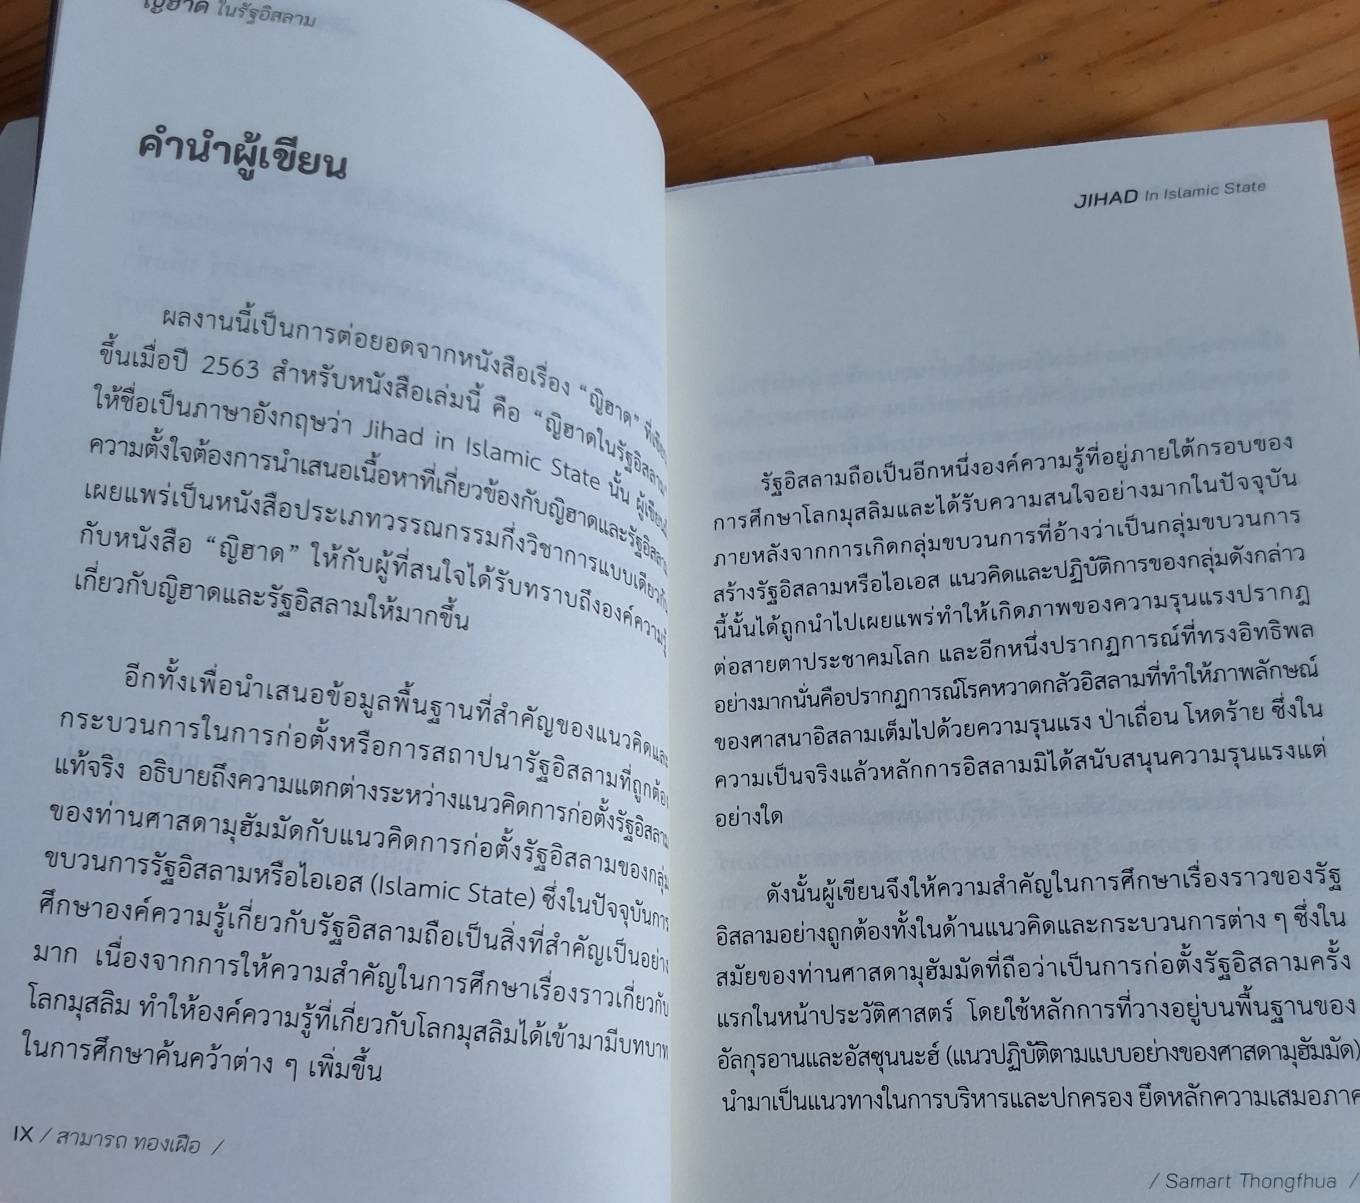 ญิฮาด ในรัฐอิสลาม
คำนำผู้เขียน
ผลงานนี้เป็นการต่อยอดจากหนังสือเรื่อง “ญิฮาด” ที่เขียน
ขึ้นเมื่อปี 2563 สำหรับหนังสือเล่มนี้ คือ “ญิฮาดในรัฐอิสลาม”
ให้ชื่อเป็นภาษาอังกฤษว่า Jihad in Islamic State นั้น ผู้เขียน
ความตั้งใจต้องการนำเสนอเนื้อหาที่เกี่ยวข้องกับญิฮาดและรัฐอิสลาม
เผยแพร่เป็นหนังสือประเภทวรรณกรรมกึ่งวิชาการแบบเดียวกัน
กับหนังสือ “ญิฮาด” ให้กับผู้ที่สนใจได้รับทราบถึงองค์ความรู้
เกี่ยวกับญิฮาดและรัฐอิสลามให้มากขึ้น
อีกทั้งเพื่อนำเสนอข้อมูลพื้นฐานที่สำคัญของแนวคิดและ
กระบวนการในการก่อตั้งหรือการสถาปนารัฐอิสลามที่ถูกต้อง
แท้จริง อธิบายถึงความแตกต่างระหว่างแนวคิดการก่อตั้งรัฐอิสลาม
ของท่านศาสดามุฮัมมัดกับแนวคิดการก่อตั้งรัฐอิสลามของกลุ่ม
ขบวนการรัฐอิสลามหรือไอเอส (Islamic State) ซึ่งในปัจจุบันการ
ศึกษาองค์ความรู้เกี่ยวกับรัฐอิสลามถือเป็นสิ่งที่สำคัญเป็นอย่าง
มาก เนื่องจากการให้ความสำคัญในการศึกษาเรื่องราวเกี่ยวกับ
โลกมุสลิม ทำให้องค์ความรู้ที่เกี่ยวกับโลกมุสลิมได้เข้ามามีบทบาท
ในการศึกษาค้นคว้าต่าง ๆ เพิ่มขึ้น
IX / สามารถ ทองเฝือ /
JIHAD In Islamic State
รัฐอิสลามถือเป็นอีกหนึ่งองค์ความรู้ที่อยู่ภายใต้กรอบของ
การศึกษาโลกมุสลิมและได้รับความสนใจอย่างมากในปัจจุบัน
ภายหลังจากการเกิดกลุ่มขบวนการที่อ้างว่าเป็นกลุ่มขบวนการ
สร้างรัฐอิสลามหรือไอเอส แนวคิดและปฏิบัติการของกลุ่มดังกล่าว
นี้นั้นได้ถูกนำไปเผยแพร่ทำให้เกิดภาพของความรุนแรงปรากฏ
ต่อสายตาประชาคมโลก และอีกหนึ่งปรากฏการณ์ที่ทรงอิทธิพล
อย่างมากนั่นคือปรากฏการณ์โรคหวาดกลัวอิสลามที่ทำให้ภาพลักษณ์
ของศาสนาอิสลามเต็มไปด้วยความรุนแรง ป่าเถื่อน โหดร้าย ซึ่งใน
ความเป็นจริงแล้วหลักการอิสลามมิได้สนับสนุนความรุนแรงแต่
อย่างใด
ดังนั้นผู้เขียนจึงให้ความสำคัญในการศึกษาเรื่องราวของรัฐ
อิสลามอย่างถูกต้องทั้งในด้านแนวคิดและกระบวนการต่าง ๆ ซึ่งใน
สมัยของท่านศาสดามุฮัมมัดที่ถือว่าเป็นการก่อตั้งรัฐอิสลามครั้ง
แรกในหน้าประวัติศาสตร์ โดยใช้หลักการที่วางอยู่บนพื้นฐานของ
อัลกุรอานและอัสซุนนะฮ์ (แนวปฏิบัติตามแบบอย่างของศาสดามุฮัมมัด)
นำมาเป็นแนวทางในการบริหารและปกครอง ยึดหลักความเสมอภาค
/ Samart Thongfhua /